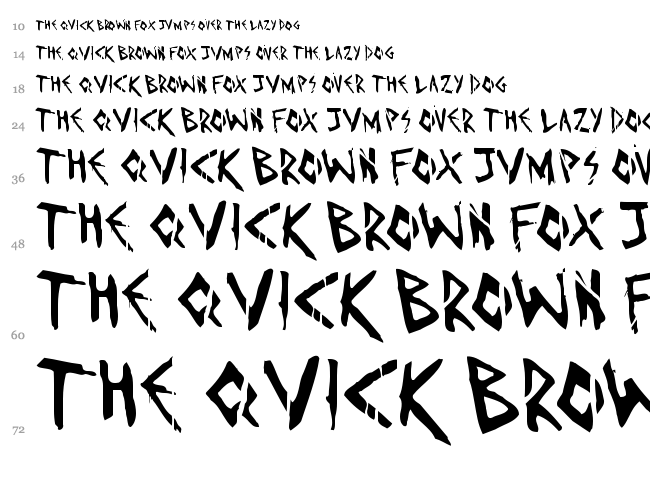 10 THE QVICK BROWN FOX JVMPS OVER THE LAZY DOG
14 THE QVICK BROWN FOX JVMPS OVER THE LAZY DOG
18 THE QVICK BROWN FOX JVMPS OVER THE LAZY DOG
24 THE QVICK BROWN FOX JVMPS OVER THE LAZY DOG
36 THE QVICK BROWN FOX JVMPS OV
48 THE QVICK BROWN FOX J
60 THE QVICK BROWN F
72 THE QVICK BROW